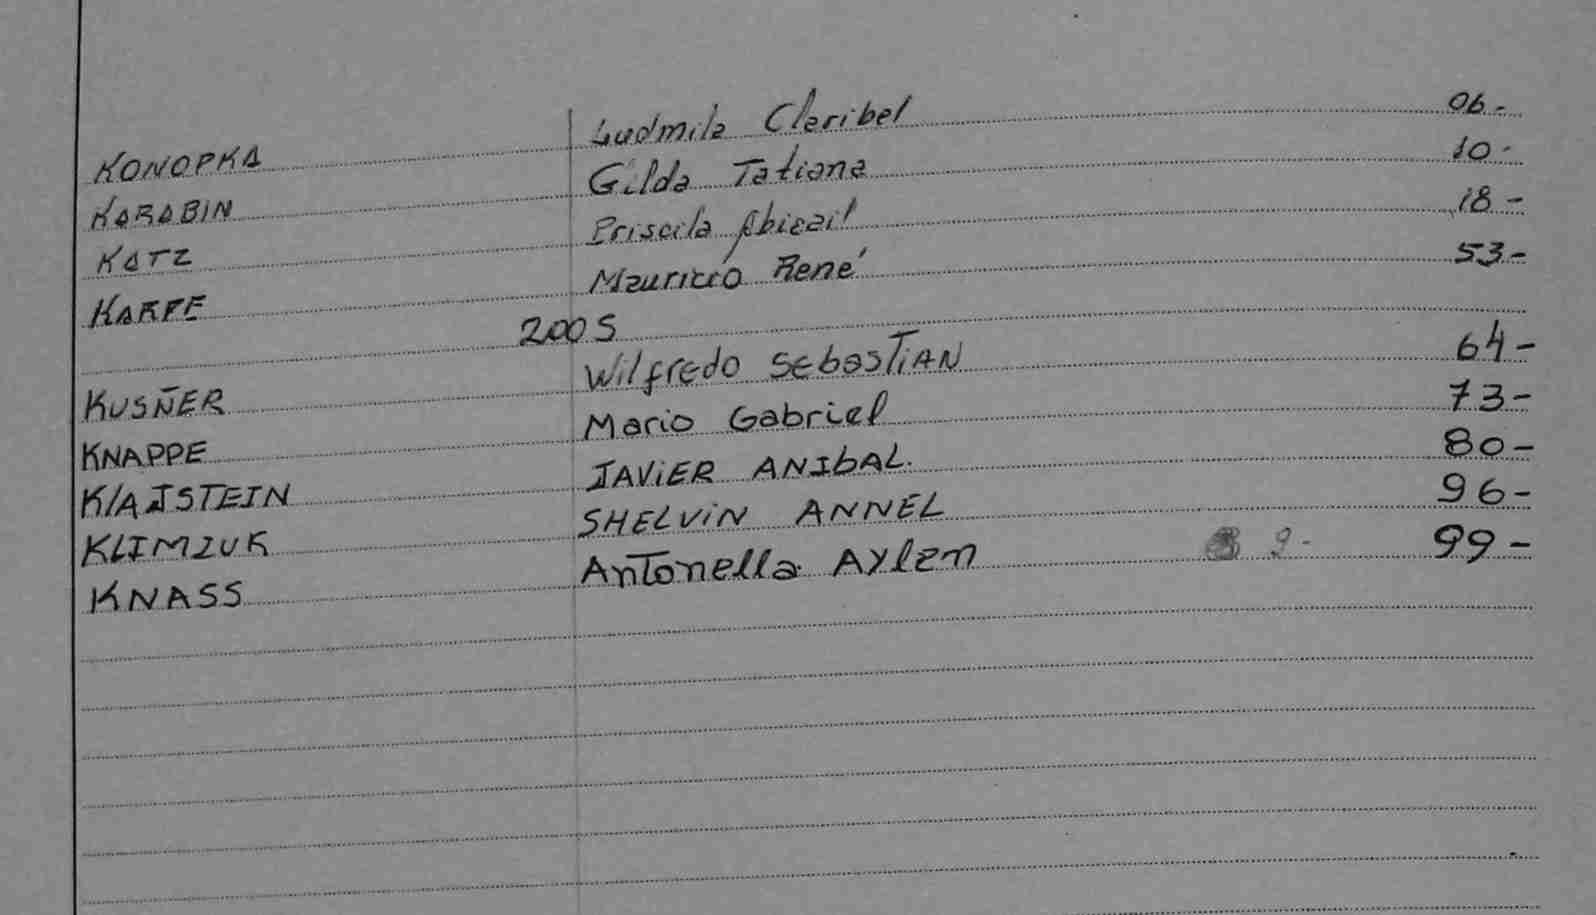 KONOPKA Ludmila Claribel 06-
KARABIN Gilda Tatiana 10-
KATZ Priscila Abigail 18-
KARPE Mauricio René 53-
2005
KUSÑER Wilfredo SEbasTiAN 64-
KNAPPE Mario Gabriel 73-
KlAJSTEIN JAViER ANIbAL. 80-
KLIMZUK SHELViN ANNEL 96-
KNASS AnTonella AYlEn 9- 99-